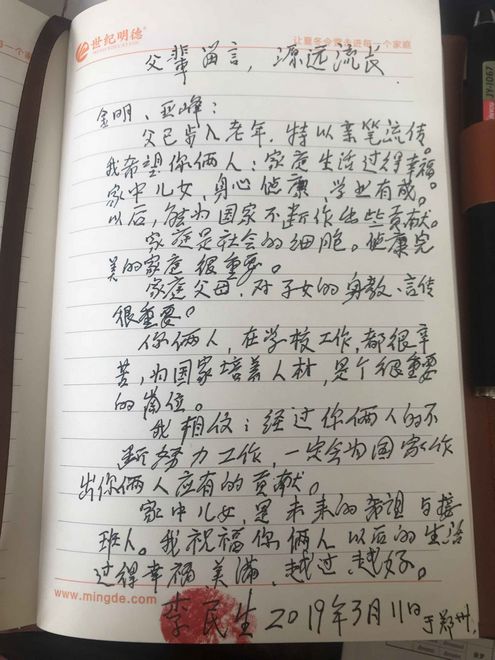 世纪明德
让夏冬令营走进每一个家庭
一个家庭
父辈留言,源远流长
金明、亚峰:
父已步入老年,特以亲笔流传。
我希望你俩人:家庭生活过得幸福
家中儿女身心健康,学业有成。
以后,能为国家不断作出些贡献。
家庭是社会的细胞。健康完
美的家庭很重要。
家庭父母,对子女的身教、言传
很重要。
你俩人,在学校工作,都很辛
苦,为国家培养人材,是个很重要
的岗位。
我相信:经过你俩人的不
断努力工作,一定会为国家作
出你俩人应有的贡献。
家中儿女,是未来的希望与接
班人。我祝福你俩人以后的生活
过得幸福美满,越过越好。
www.mingde.com
李民生 2019年3月11日于郑州.